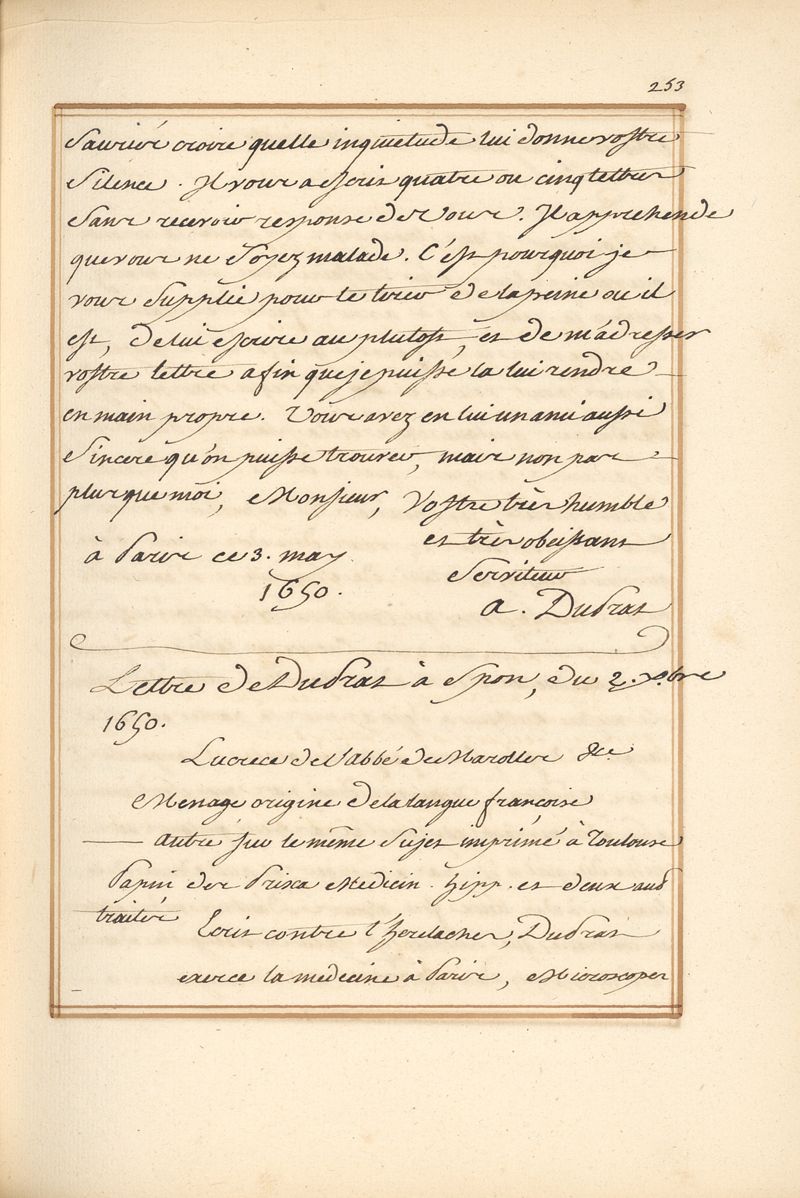 253
sauriés croire quelle inquietude lui donne vostre
silence. Il vous a escris quatre ou cinq lettres
sans recevoir response de vous. Il apprehende
que vous ne soyez malade. C'est pourquoi je
vous supplie pour le tirer de la peine ou il
est, de lui escrire au plutost, et de m'adresser
vostre lettre afin que je puisse la lui rendre
en main propre. Vous avez en lui un ami aussi
sincere qu'on puisse trouver, mais non pas
plus que moi, Monsieur, Vostre très humble
et très obeissant
à Paris ce 3. may
serviteur
1650.
a. DuPrat
Lettre de DuPrat à Spon, du 2. xbre
1650.
Lucrece de l'abbé de Marolles &c.
Menage origine de la langue françoise
— autre sur le même sujet imprimé à Toulouse
Papin de Prisca Medicin. hipp. et deux aud
traités
Ecrit contre l', DuPrat
exerce la medecine à Paris, Microscopes